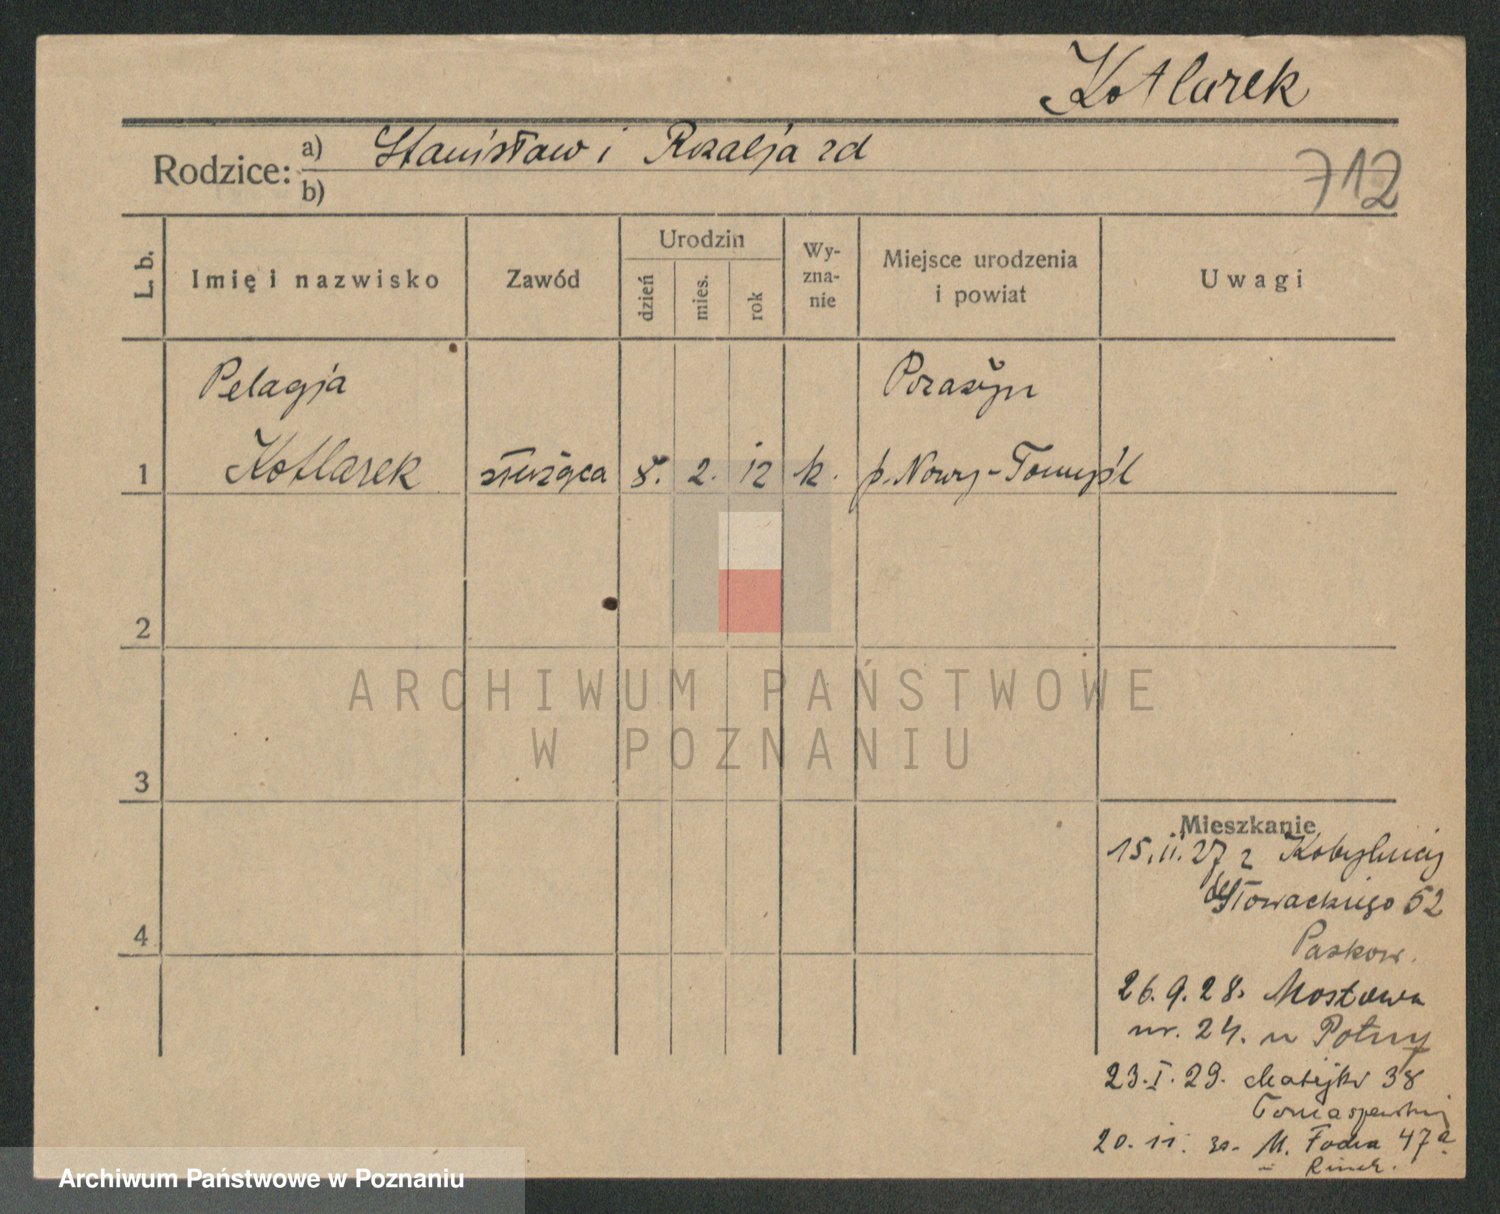 Kotlarek
Rodzice: a) Stanisław i Rozalja zd
b)
712
L. b.
Imię i nazwisko
Zawód
Urodzin
dzień
mies.
rok
Wy-
zna-
nie
Miejsce urodzenia
i powiat
Uwagi
Pelagja
Porażyn
1 Kotlarek służąca 8. 2. 12 k. p. Nowy-Tomyśl
2
3
4
ARCHIWUM PAŃSTWOWE
W POZNANIU
Mieszkanie
15.11.27 z Kobylnicy
Słowackiego 52
Paskow.
26.9.28. Mostowa
nr. 24. u
23.I.29. Matejki 38
Tomaszewski
20.11.30. M. Focha 47a
Archiwum Państwowe w Poznaniu